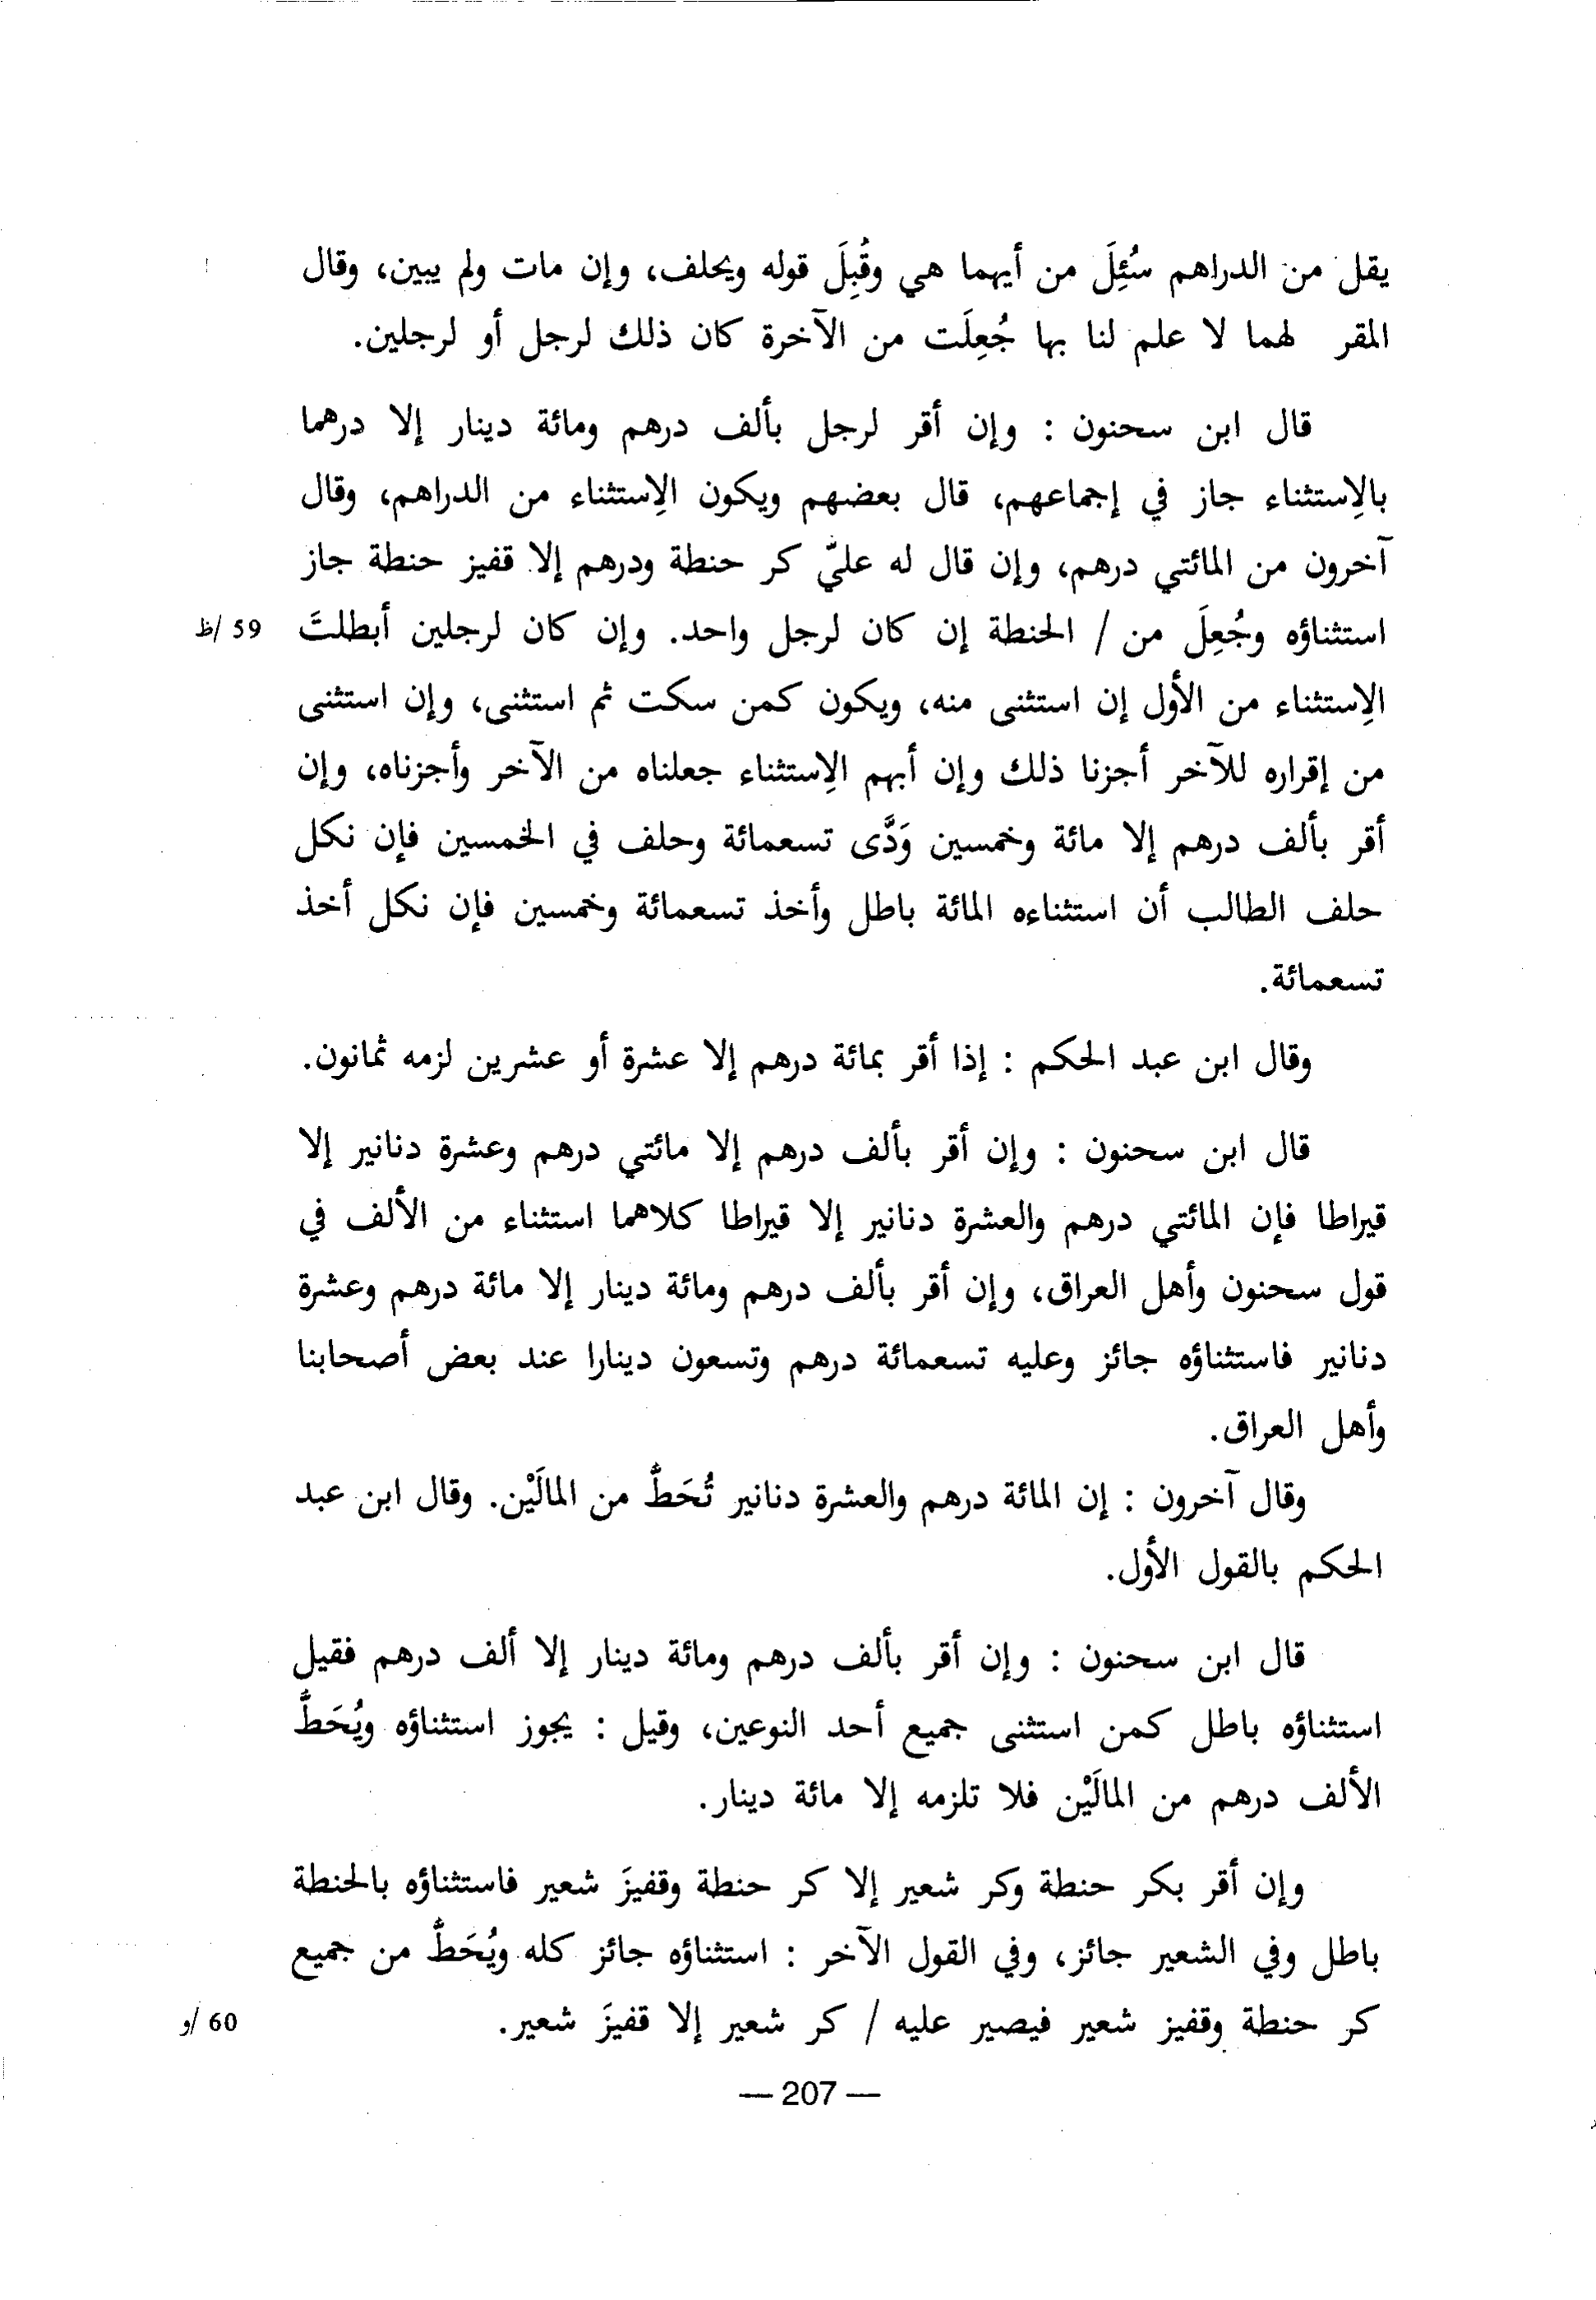 يقل من الدراهم سُئِلَ من أيهما هي وقُبِلَ قوله ويحلف، وإن مات ولم يبين، وقال
المقر لهما لا علم لنا بها جُعِلَت من الآخرة كان ذلك لرجل أو لرجلين.
قال ابن سحنون : وإن أقر لرجل بألف درهم ومائة دينار إلا درهما
بالإستثناء جاز في إجماعهم، قال بعضهم ويكون الإستثناء من الدراهم، وقال
آخرون من المائتي درهم، وإن قال له عليّ كر حنطة ودرهم إلا قفيز حنطة جاز
استثناؤه وجُعِلَ من / الحنطة إن كان لرجل واحد. وإن كان لرجلين أبطلتَ 59 /ظ
الإستثناء من الأول إن استثنى منه، ويكون كمن سكت ثم استثنى، وإن استثنى
من إقراره للآخر أجزنا ذلك وإن أبهم الإستثناء جعلناه من الآخر وأجزناه، وإن
أقر بألف درهم إلا مائة وخمسين وَدَّى تسعمائة وحلف في الخمسين فإن نكل
حلف الطالب أن استثناءه المائة باطل وأخذ تسعمائة وخمسين فإن نكل أخذ
تسعمائة.
وقال ابن عبد الحكم : إذا أقر بمائة درهم إلا عشرة أو عشرين لزمه ثمانون.
قال ابن سحنون : وإن أقر بألف درهم إلا مائتي درهم وعشرة دنانير إلا
قيراطا فإن المائتي درهم والعشرة دنانير إلا قيراطا كلاهما استثناء من الألف في
قول سحنون وأهل العراق، وإن أقر بألف درهم ومائة دينار إلا مائة درهم وعشرة
دنانير فاستثناؤه جائز وعليه تسعمائة درهم وتسعون دينارا عند بعض أصحابنا
وأهل العراق.
وقال آخرون : إن المائة درهم والعشرة دنانير تُحَطُّ من المالَيْن. وقال ابن عبد
الحكم بالقول الأول.
قال ابن سحنون : وإن أقر بألف درهم ومائة دينار إلا ألف درهم فقيل
استثناؤه باطل كمن استثنى جميع أحد النوعين، وقيل : يجوز استثناؤه ويُحَطُّ
الألف درهم من المالَيْن فلا تلزمه إلا مائة دينار.
وإن أقر بكر حنطة وكر شعير إلا كر حنطة وقفيزَ شعير فاستثناؤه بالحنطة
باطل وفي الشعير جائز، وفي القول الآخر : استثناؤه جائز كله ويُحَطُّ من جميع
كر حنطة وقفيز شعير فيصير عليه / كر شعير إلا قفيزَ شعير. 60 /و
— 207 —